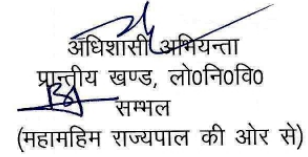 अधिशासी अभियन्ता
प्रान्तीय खण्ड, लो0नि0वि0
सम्भल
(महामहिम राज्यपाल की ओर से)